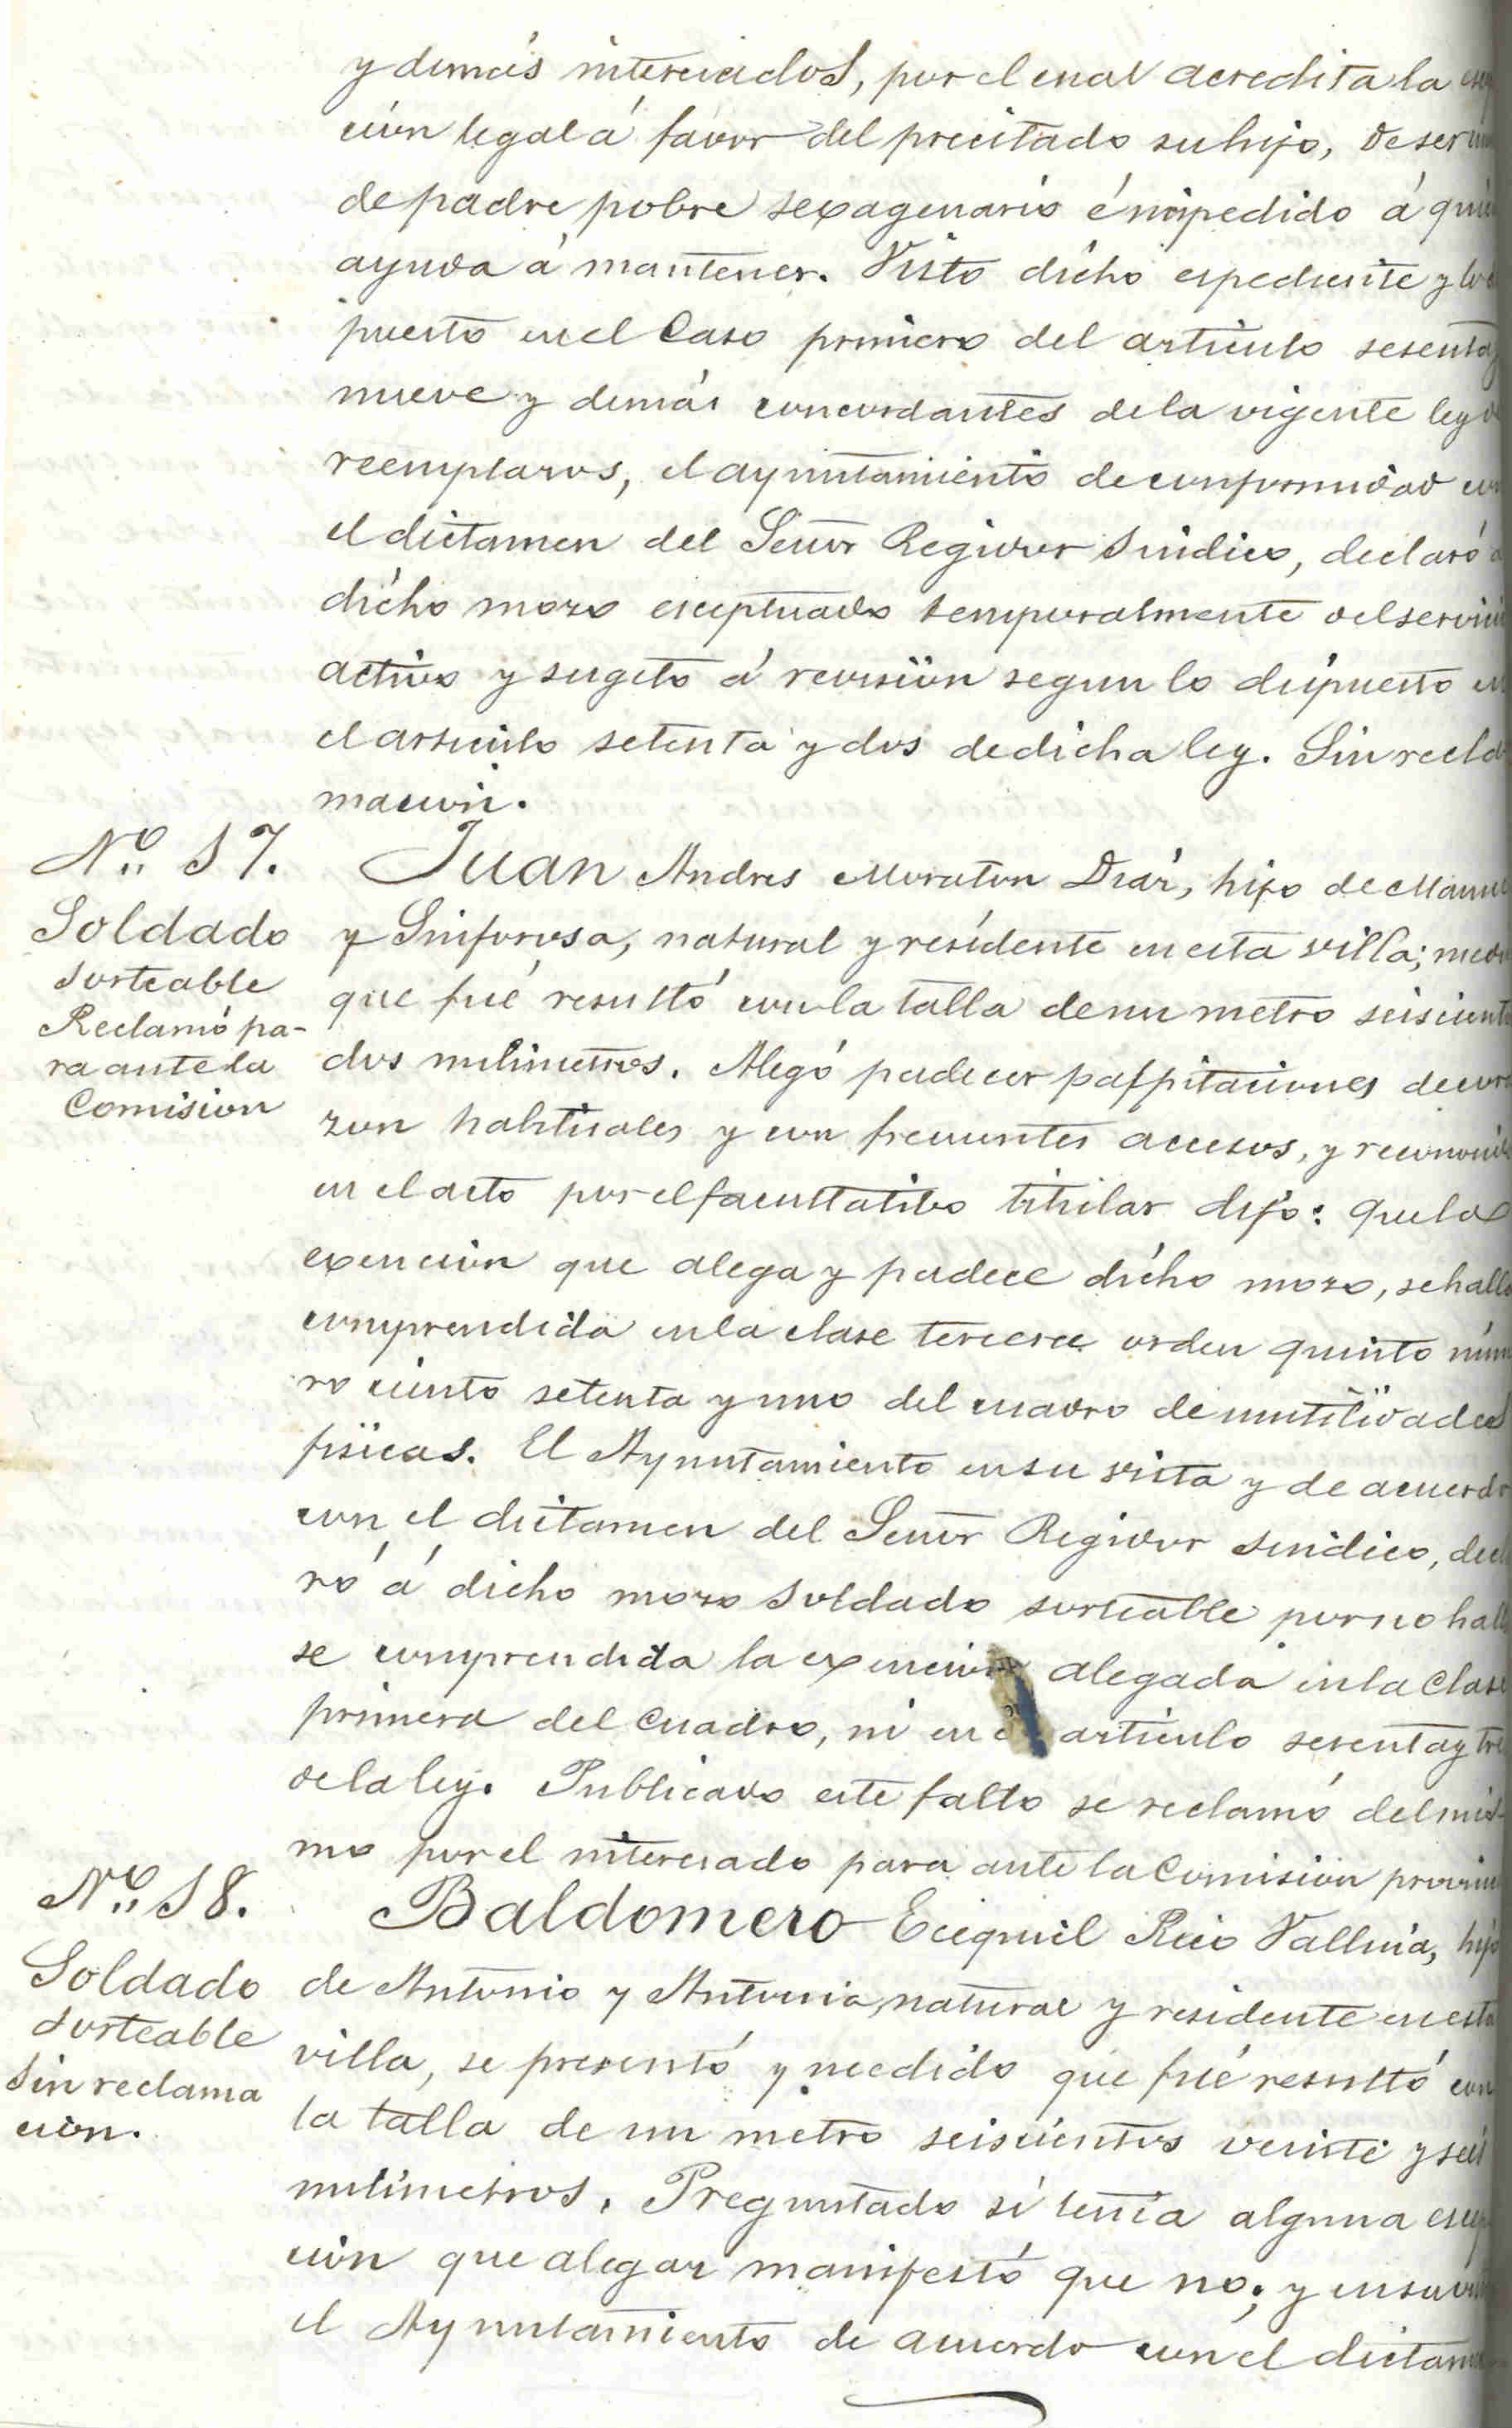 y demás interesados, por el cual acredita la
cion legal á favor del precitado su hijo, de ser
de padre pobre sexagenario é impedido á quien
ayuda á mantener. Visto dicho espediente y lo
puesto en el Caso primero del artículo sesenta y
nueve y demás concordantes de la vigente ley de
reemplazos, el ayuntamiento de conformidad con
el dictamen del Señor Regidor Sindico, declaró á
dicho mozo esceptuado temporalmente del servicio
activo y sugeto á revisión segun lo dispuesto en
el artículo setenta y dos de dicha ley. Sin recla
macion.
Nº 17.
Soldado
Sorteable
Reclamó pa-
ra ante la
Comision
Juan Andres Moraton Diaz, hijo de Manuel
y Sinforosa, natural y residente en esta villa; medido
que fué resultó con la talla de un metro seiscientos
dos milimetros. Alegó padecer palpitaciones de cora
zon habituales y con frecuentes accesos, y reconocido
en el acto por el facultativo titular dijo: que la
exencion que alega y padece dicho mozo, se halla
comprendida en la clase tercera orden quinto núme
ro ciento setenta y uno del cuadro de inutilidades
fisicas. El Ayuntamiento en su vista y de acuerdo
con el dictamen del Señor Regidor Sindico, decla
ró á dicho mozo Soldado sorteable por no hallar
se comprendida la exencion alegada en la Clase
primera del Cuadro, ni en el artículo sesenta y tres
de la ley. Publicado este fallo se reclamó del mis-
mo por el interesado para ante la Comisión provincial
Nº 18.
Soldado
Sorteable
Sin reclama
cion.
Baldomero Eciquiel Rico Vallina, hijo
de Antonio y Antonia, natural y residente en esta
villa, se presentó y medido que fué resultó con
la talla de un metro seiscientos veinte y seis
milimetros. Preguntado si tenía alguna escep
ción que alegar manifestó que no; y en su vista
el Ayuntamiento de acuerdo con el dictamen